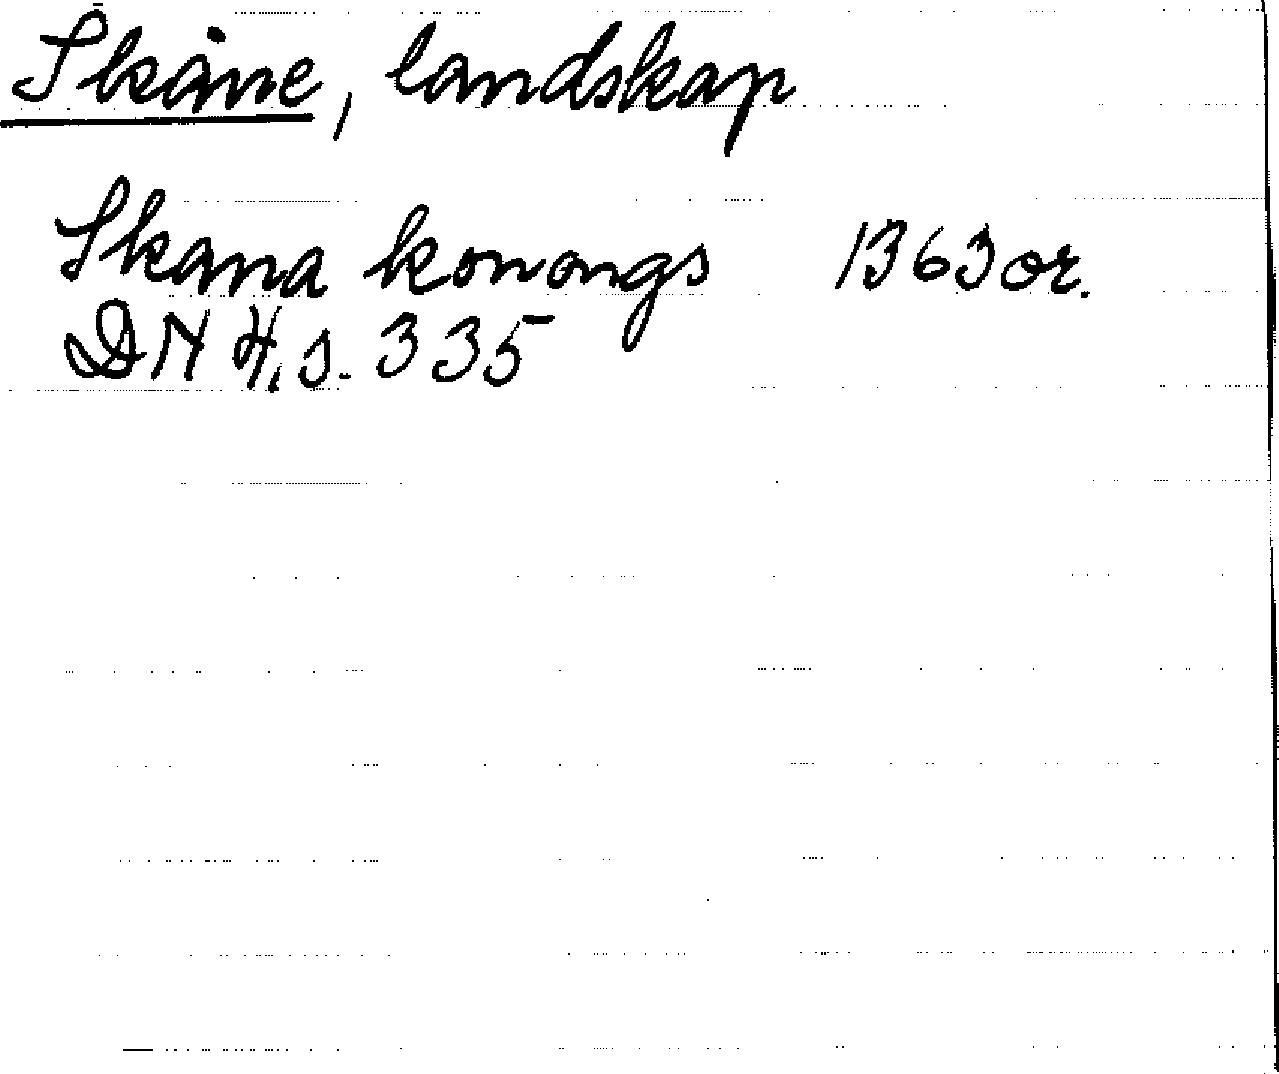 Skåne, landskap
Skana konongs 1363 or.
DN 4, s. 335